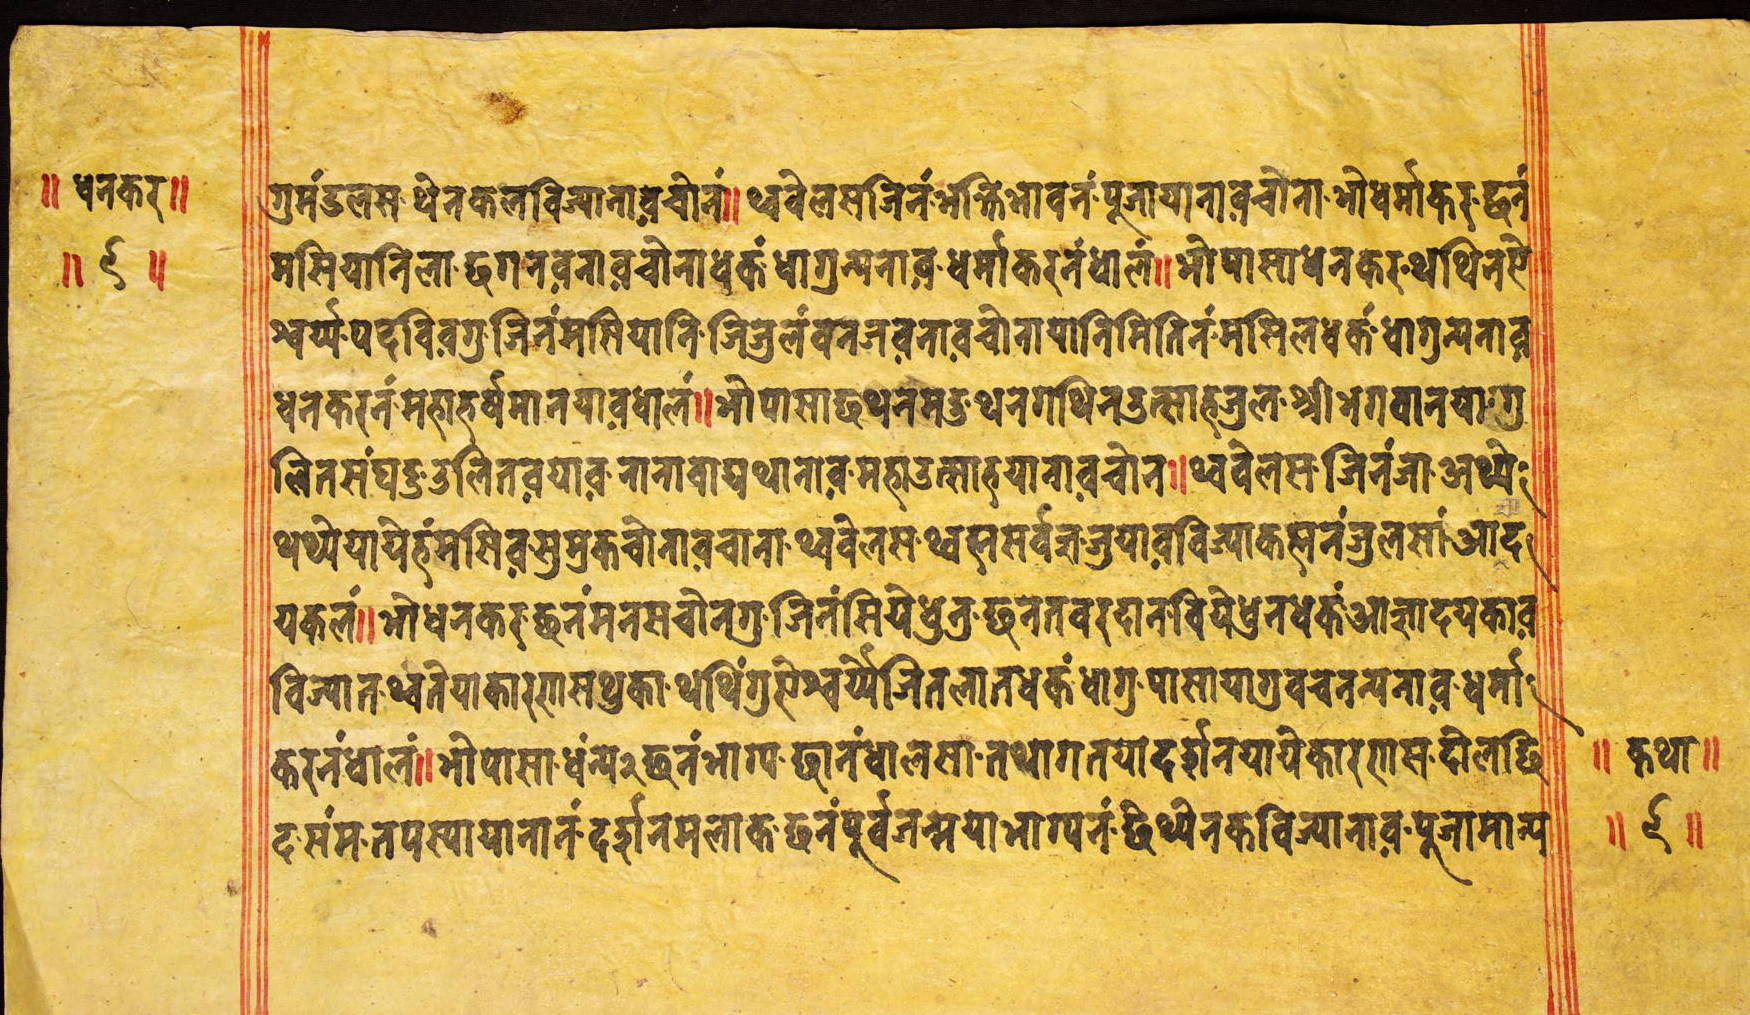 ॥ धनकर॥
॥ ९ ॥
गुमंडलस थेनकलविज्यानाव़चोनं॥ थ्ववेलसजिनं भक्तिभावनं पूजायानाव़चोना भोधर्माकर छनं
मसियानिला छगनव़नाव़चोना धकं धागुन्यनाव़ धर्माकरनंधालं॥ भोपासाधनकर थथिनऐ
श्वर्य्य पदविव़गु जिनंमसियानि जिजुलंवनजव़नाव़चोनायानिमितिनं मसिलधकं धागुन्यनाव़
धनकरनं महाहर्षमानयाव़धालं॥ भोपासाछथनमडु थनगथिनउत्साहजुल श्रीभगवानयागु
लितसंघडुउलितव़याव़ नानावाद्यथानाव़ महाउत्साहयानाव़चोन॥ थ्ववेलस जिनंजा अथ्ये
थथ्येयायेहंमसिव़ सुमुकचोनाव़चोना थ्ववेलस थ्वह्मसर्वज्ञजुयाव़विज्याकह्मनंजुलसां आद
यकलं॥ भोधनकर छनंमनसचोनगु जिनंसियेधुनु छनतवरदानवियेधुनधकं आज्ञादयकाव़
विज्यात थ्वतेयाकारणसथुका थथिंगुऐश्वर्य्यजितलातधकं धागु पासायागुवचनन्यनाव़ धर्मा
करनंधालं॥ भोपासा धंन्य२छनंभाग्य छानंधालसा तथागतयादर्शनयायेकारणस दोलछि
द संम तपस्यायानानं दर्शनमलाक छनंपूर्वजन्मयाभाग्यनं छेथ्येनकविज्यानाव़ पूजामान्य
॥ कथा॥
॥ ९ ॥